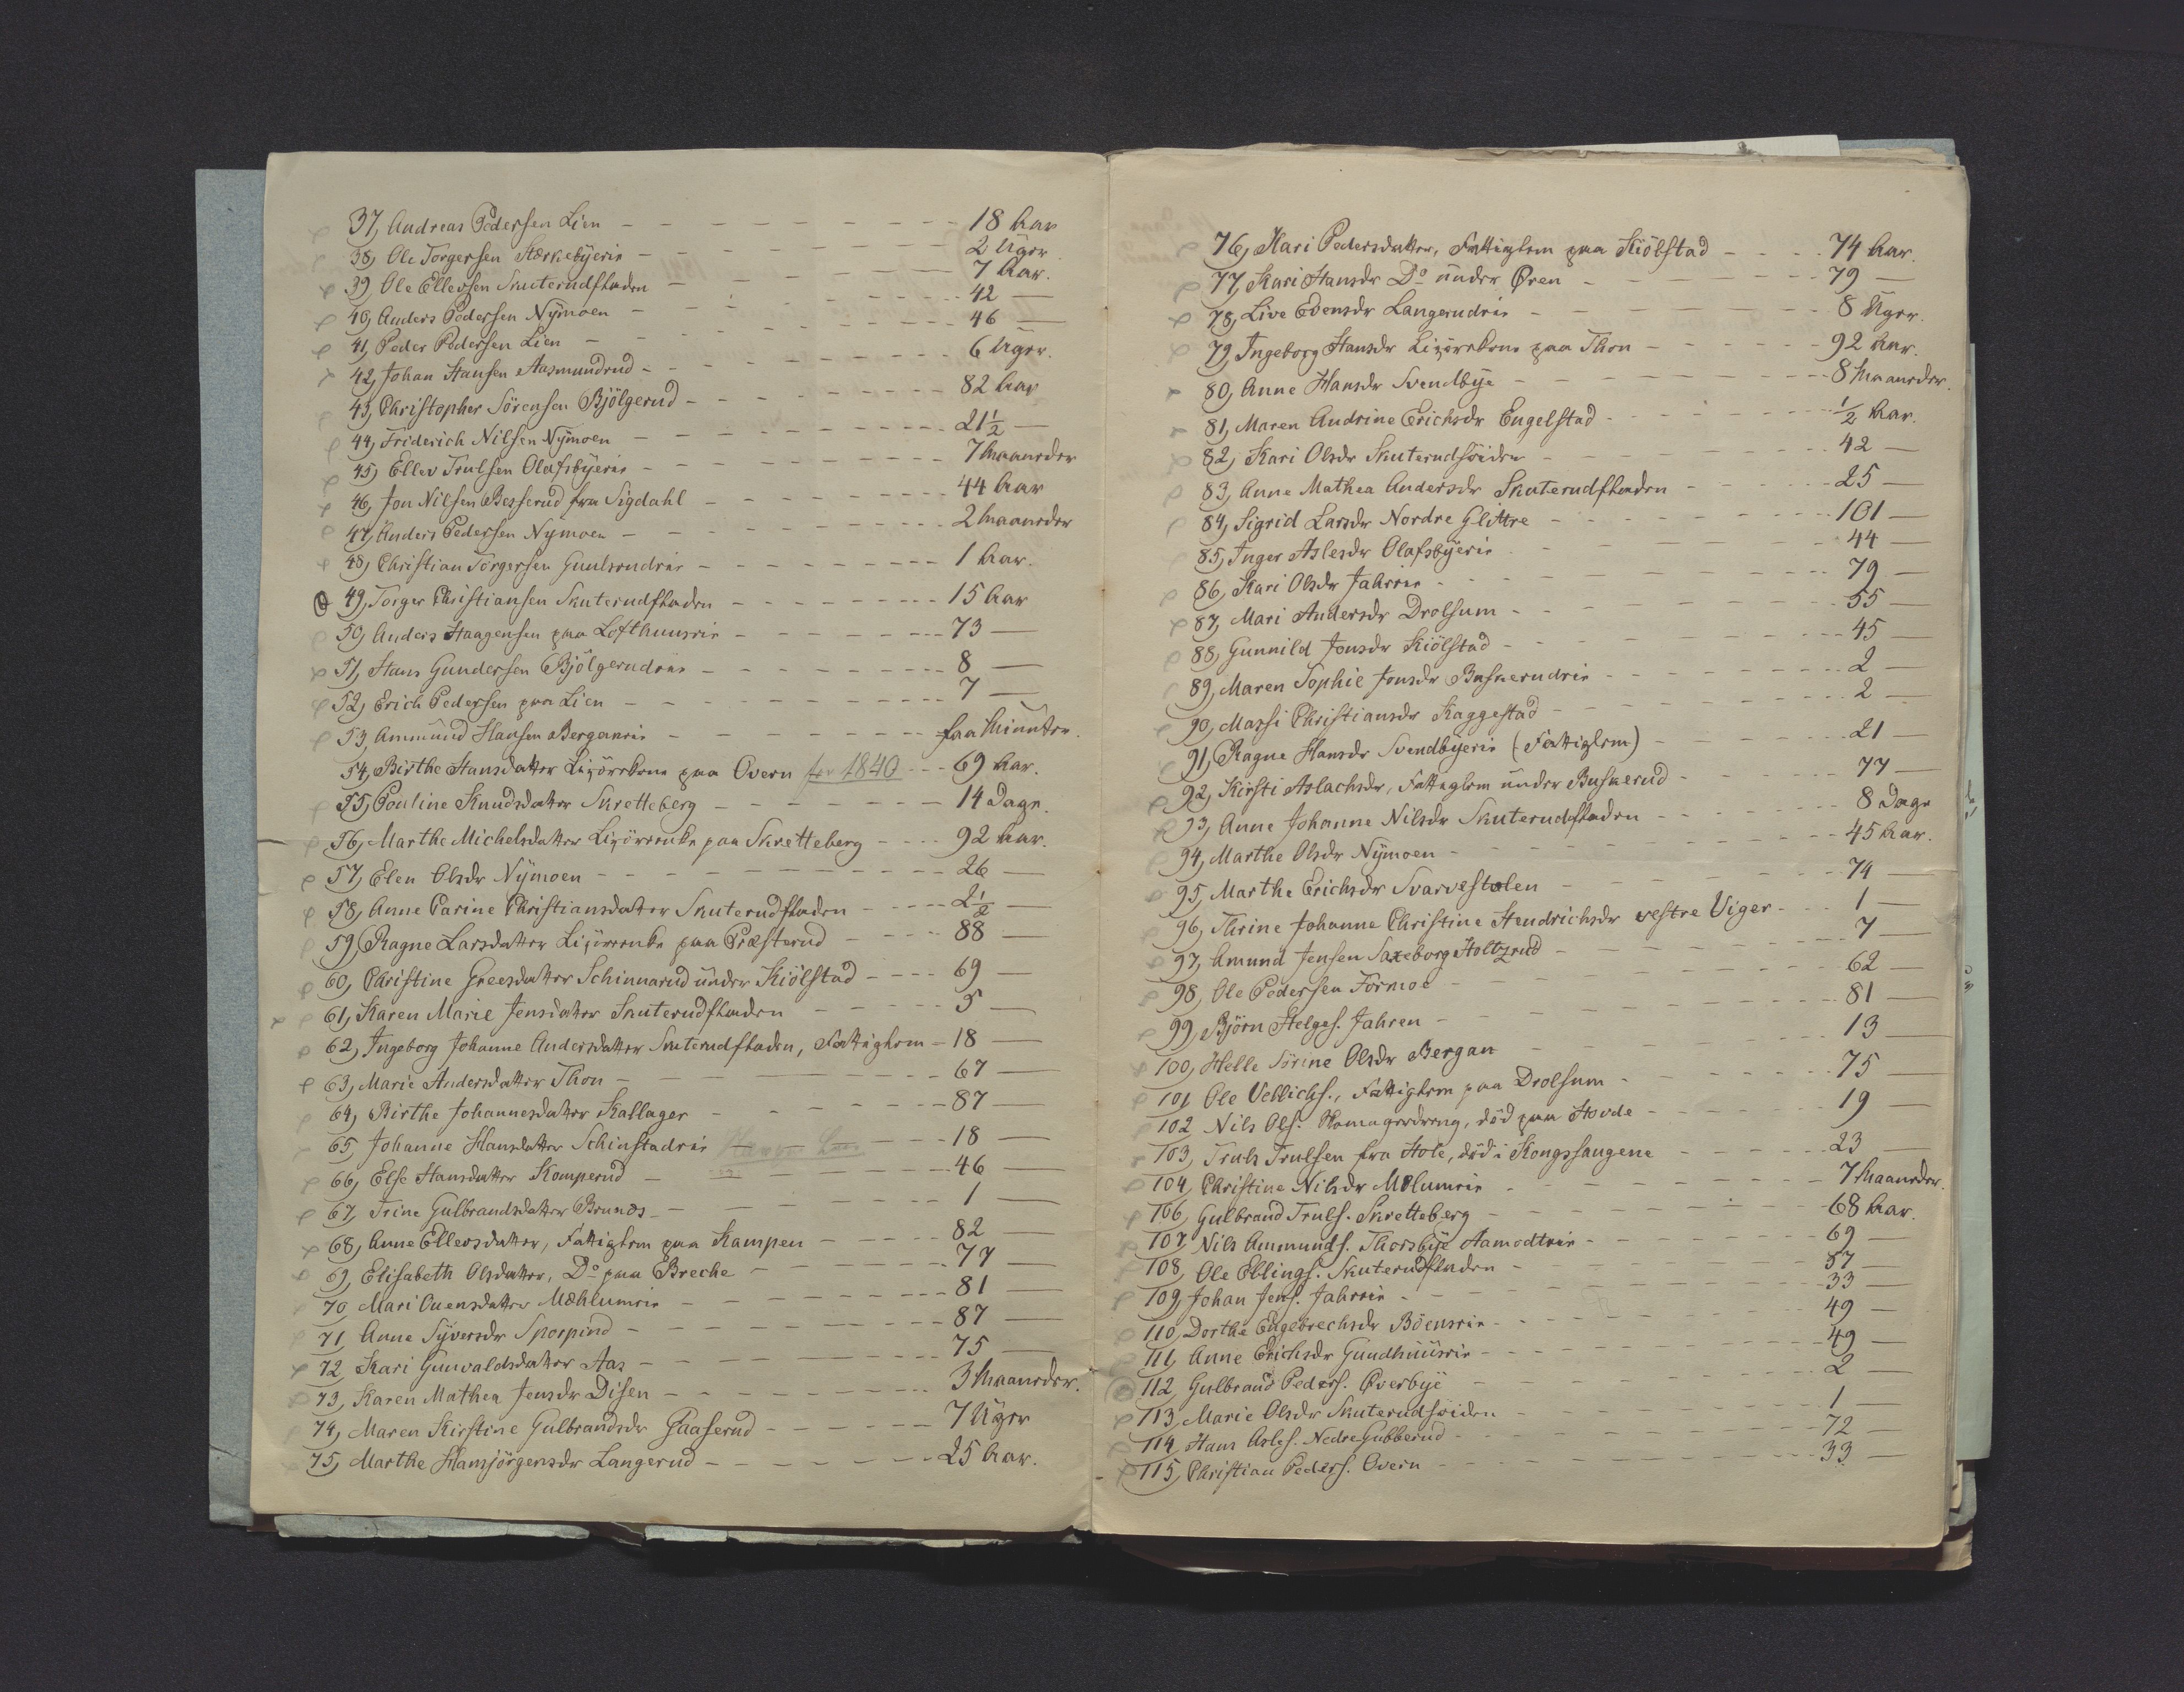 37, Andreas Pedersen Lien - - - 18 Aar
38, Ole Torgersen Stærkebÿerie - - - 2 Uger
39, Ole Ellevsen Skuterudfladen - - - 7 Aar.
40, Anders Pedersen Nÿmoen - - - 42 —
41, Peder Pedersen Lien - - - 46 —
42, Johan Hansen Aasmundrud - - - 6 Uger.
43, Christopher Sörensen Bjölgerud - - - 82 Aar
44, Friderich Nilsen Nÿmoen - - - 21½ —
45, Ellev Trulsen Olafsbÿerie - - - 7 Maaneder
46, Jon Nilsen Besserud fra Sigdahl - - - 44 Aar
47, Anders Pedersen Nÿmoen - - - 2 Maaneder
48, Christian Torgersen Gunlerudeie - - - 1 Aar.
49, Torger Christiansen Skuterudfladen - - - 15 Aar
50, Anders Haagensen paa Lofthuuseie - - - 73 —
51, Hans Gundersen Bjölgerudeie - - - 8 —
52, Erich Pedersen paa Lien - - - 7 —
53, Ammund Hansen Berganeie - - - faa Minuter.
54, Birthe Hansdatter Ligörekone paa Overn før 1840 - - - 69 Aar.
55, Pouline Knudsdatter Skretteberg - - - 14 Dage.
56, Marthe Michelsdatter Ligöreenke paa Skretteberg - - - 92 Aar.
57, Elen Olsdr Nÿmoen - - - 26 —
58, Anne Parine Christiansdatter Skuterudfladen - - - 2½ —
59, Ragne Larsdatter Ligöreenke paa Præsterud - - - 88 —
60, Christine Greesdatter Schinnarud under Kiölstad - - - 69 —
61, Karen Marie Jensdatter Skuterudfladen - - - 5 —
62, Ingeborg Johanne Andersdatter Skuterudfladen, Fattiglem - 18 —
63, Marie Andersdatter Thon - - - 67 —
64, Birthe Johannesdatter Kallager - - - 87 —
65, Johanne Hansdatter Schinstadeie - - - 18 —
66, Else Hansdatter Komperud - - - 46 —
67, Trine Gulbrandsdatter Brunæs - - - 1 —
68, Anne Ellevsdatter, Fattiglem paa Kampen - - - 82 —
69, Elisabeth Olsdatter, Do paa Breche - - - 77 —
70, Mari Ouensdatter Mæhlumeie - - - 81 —
71, Anne Sÿversdr Sporpind - - - 87 —
72, Kari Gunvaldsdatter Aas - - - 75 —
73, Karen Mathea Jensdr Disen - - - 3 Maaneder.
74, Maren Kirstine Gulbrandsdr Gaaserud - - - 7 Uger
75, Marthe Hansjörgensdr Langerud - - - 25 Aar.
76, Kari Pedersdatter, Fattiglem paa Kiölstad - - - 74 Aar.
77, Kari Hansdr Do under Øren - - - 79 —
78, Live Evensdr Langerudeie - - - 8 Uger.
79, Ingeborg Hansdr Ligörekone paa Thon - - - 92 Aar.
80, Anne Hansdr Svendbÿe - - - 8 Maaneder.
81, Maren Andrine Erichsdr Engelstad - - - ½ Aar.
82, Kari Olsdr Skuterudsviden - - - 42 —
83, Anne Mathea Andersdr Skuterudfladen - - - 25 —
84, Sigrid Larsdr Nordre Glittre - - - 101 —
85, Inger Aslesdr Olafsbÿerie - - - 44 —
86, Kari Olsdr Jahreie - - - 79 —
87, Mari Andersdr Drolsum - - - 55 —
88, Gunnild Jonsdr Kiölstad - - - 45 —
89, Maren Sophie Jonsdr Buskerudeie - - - 2 —
90, Massi Christiansdr Kaggestad - - - 2 —
91, Ragne Hansdr Svendbÿerie (Fattiglem) - - - 21 —
92, Kirsti Aslachsdr, Fattiglem under Buskerud - - - 77 —
93, Anne Johanne Nilsdr Skuterudfladen - - - 8 Dage
94, Marthe Olsdr Nÿmoen - - - 45 Aar.
95, Marthe Erichsdr Svarvestølen - - - 74 —
96, Thrine Johanne Christine Hendrichsdr vestre Viger - - - 1 —
97, Amund Jensen Saxeborg Holtzrud - - - 7 —
98, Ole Pedersen Formoe - - - 62 —
99, Björn Helges. Jahren - - - 81 —
100, Helle Sörine Olsdr Bergan - - - 13 —
101 Ole Vellichs., Fattiglem paa Drolsum - - - 75 —
102 Nils Ols. Komagerdreng, död paa Hovde - - - 19 —
103, Truls Trulsen fra Hole, död i Kongssaugene - - - 23 —
104, Christine Nilsdr Mølumeie - - - 7 Maaneder.
106, Gulbrand Truls. Skretteberg - - - 68 Aar.
107, Nils Ammunds. Thorsbÿe Aamodteie - - - 69 —
108, Ole Ellings. Skuterudfladen - - - 57 —
109, Johan Jens. Jahreie - - - 33 —
110, Dorthe Engebrechsdr Böenseie - - - 49 —
111, Anne Erichsdr Gundhuuseie - - - 49 —
112, Gulbrand Peders. Overbÿe - - - 2 —
113, Marie Olsdr Skuterudsviden - - - 1 —
114, Hans Asles. Nedre Gubberud - - - 72 —
115, Christian Peders. Overn - - - 33 —